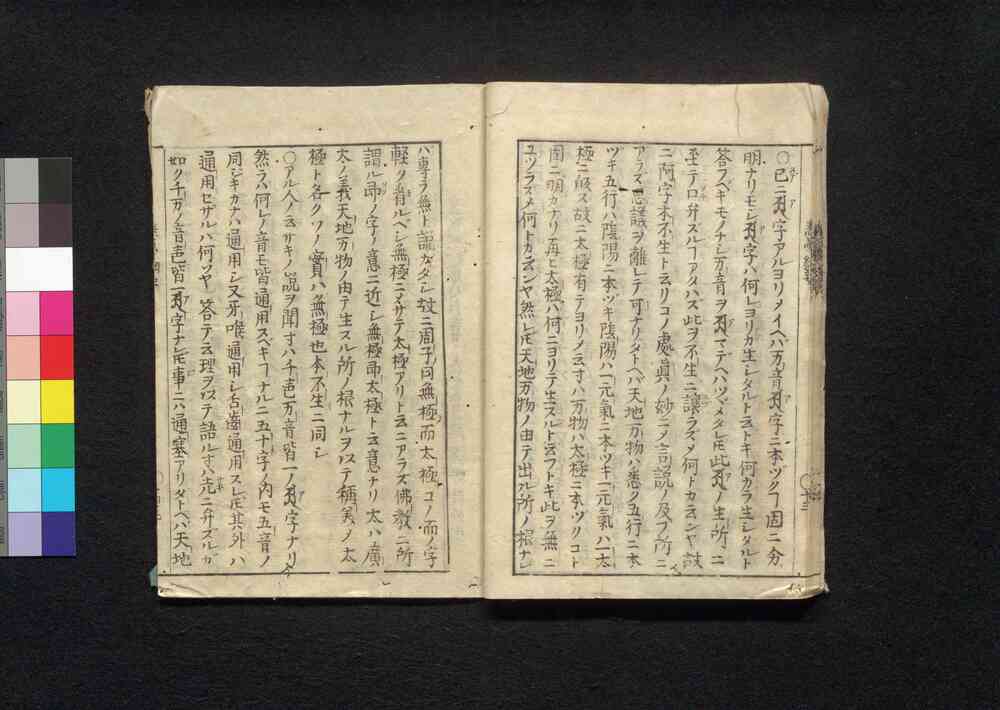 ○已ニ𑖀字アルヨリメイヘハ万音𑖀字ニ本ヅクヿ固ニ分
明ナリモシ𑖀字ハ何レヨリカ生シタルト云トキ何カラ生シタルト
答フベキモノナシ万音ヲ𑖀マデヘハツヾメタレ𪜈此𑖀ノ生所ニ
至テロ弁スルヿアタハス此ヲ不生ニ讓ラズメ何トカ云ンヤ故
ニ阿字本不生ト云リコノ處眞ノ妙ニメ言説ノ及フ所ニ
アラス思議ヲ離レテ可ナリタトヘバ天地万物ハ悉ク五行ニ本
ヅキ五行ハ陰陽ニ本ツキ陰陽ハ一元氣ニ本ツキ一元氣ハ太
極ニ皈ス故ニ太極有テヨリメ云寸ハ万物ハ太極ニ本ツクコト
固ニ明カナリ再ヒ太極ハ何ニヨリテ生スルト云フトキ此ヲ無ニ
ユツラスメ何トカ云ンヤ然レ𪜈天地万物ノ由テ出ル所ノ根ナレ
ハ專ラ無ト謂カタシ故ニ周子曰無極而太極コノ而ノ字
軽ク看ルベシ無極ニメサテ太極アリト云ニアラズ佛教ニ所
謂ル即ノ字ノ意ニ近シ無極即太極ト云意ナリ太ハ廣
太ノ義天地万物ノ由テ生スル所ノ根ナルヲ以テ稱美ノ太
極ト名クソノ實ハ無極也本不生ニ同シ
○アル人ノ云サキノ説ヲ聞寸ハ千声万音皆一ノ𑖀字ナリ
然ラハ何レノ音モ皆通用スベキヿナルニ五十字ノ内モ五音ノ
同ジキカナハ通用シ又牙喉通用シ舌齒通用スレ𪜈其外ハ
通用セザルハ何ソヤ 答テ云理ヲ以テ語ル寸ハ先ニ弁ズルガ
如ク千万ノ音声皆一𑖀字ナレ𪜈事ニハ通塞アリタトヘバ天地